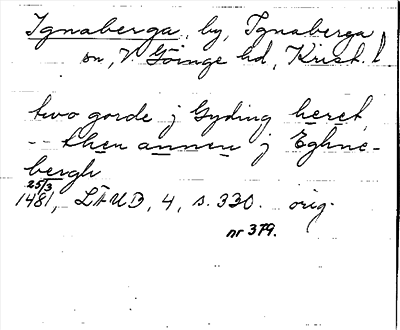 Ignaberga, by, Ignaberga
sn, V. Göinge hd, Krist. l
two gorde j Gyding heret,
-- then annen j Eghne-
bergh
25/3
1481, LÄUB, 4, s. 330. orig.
nr 379.